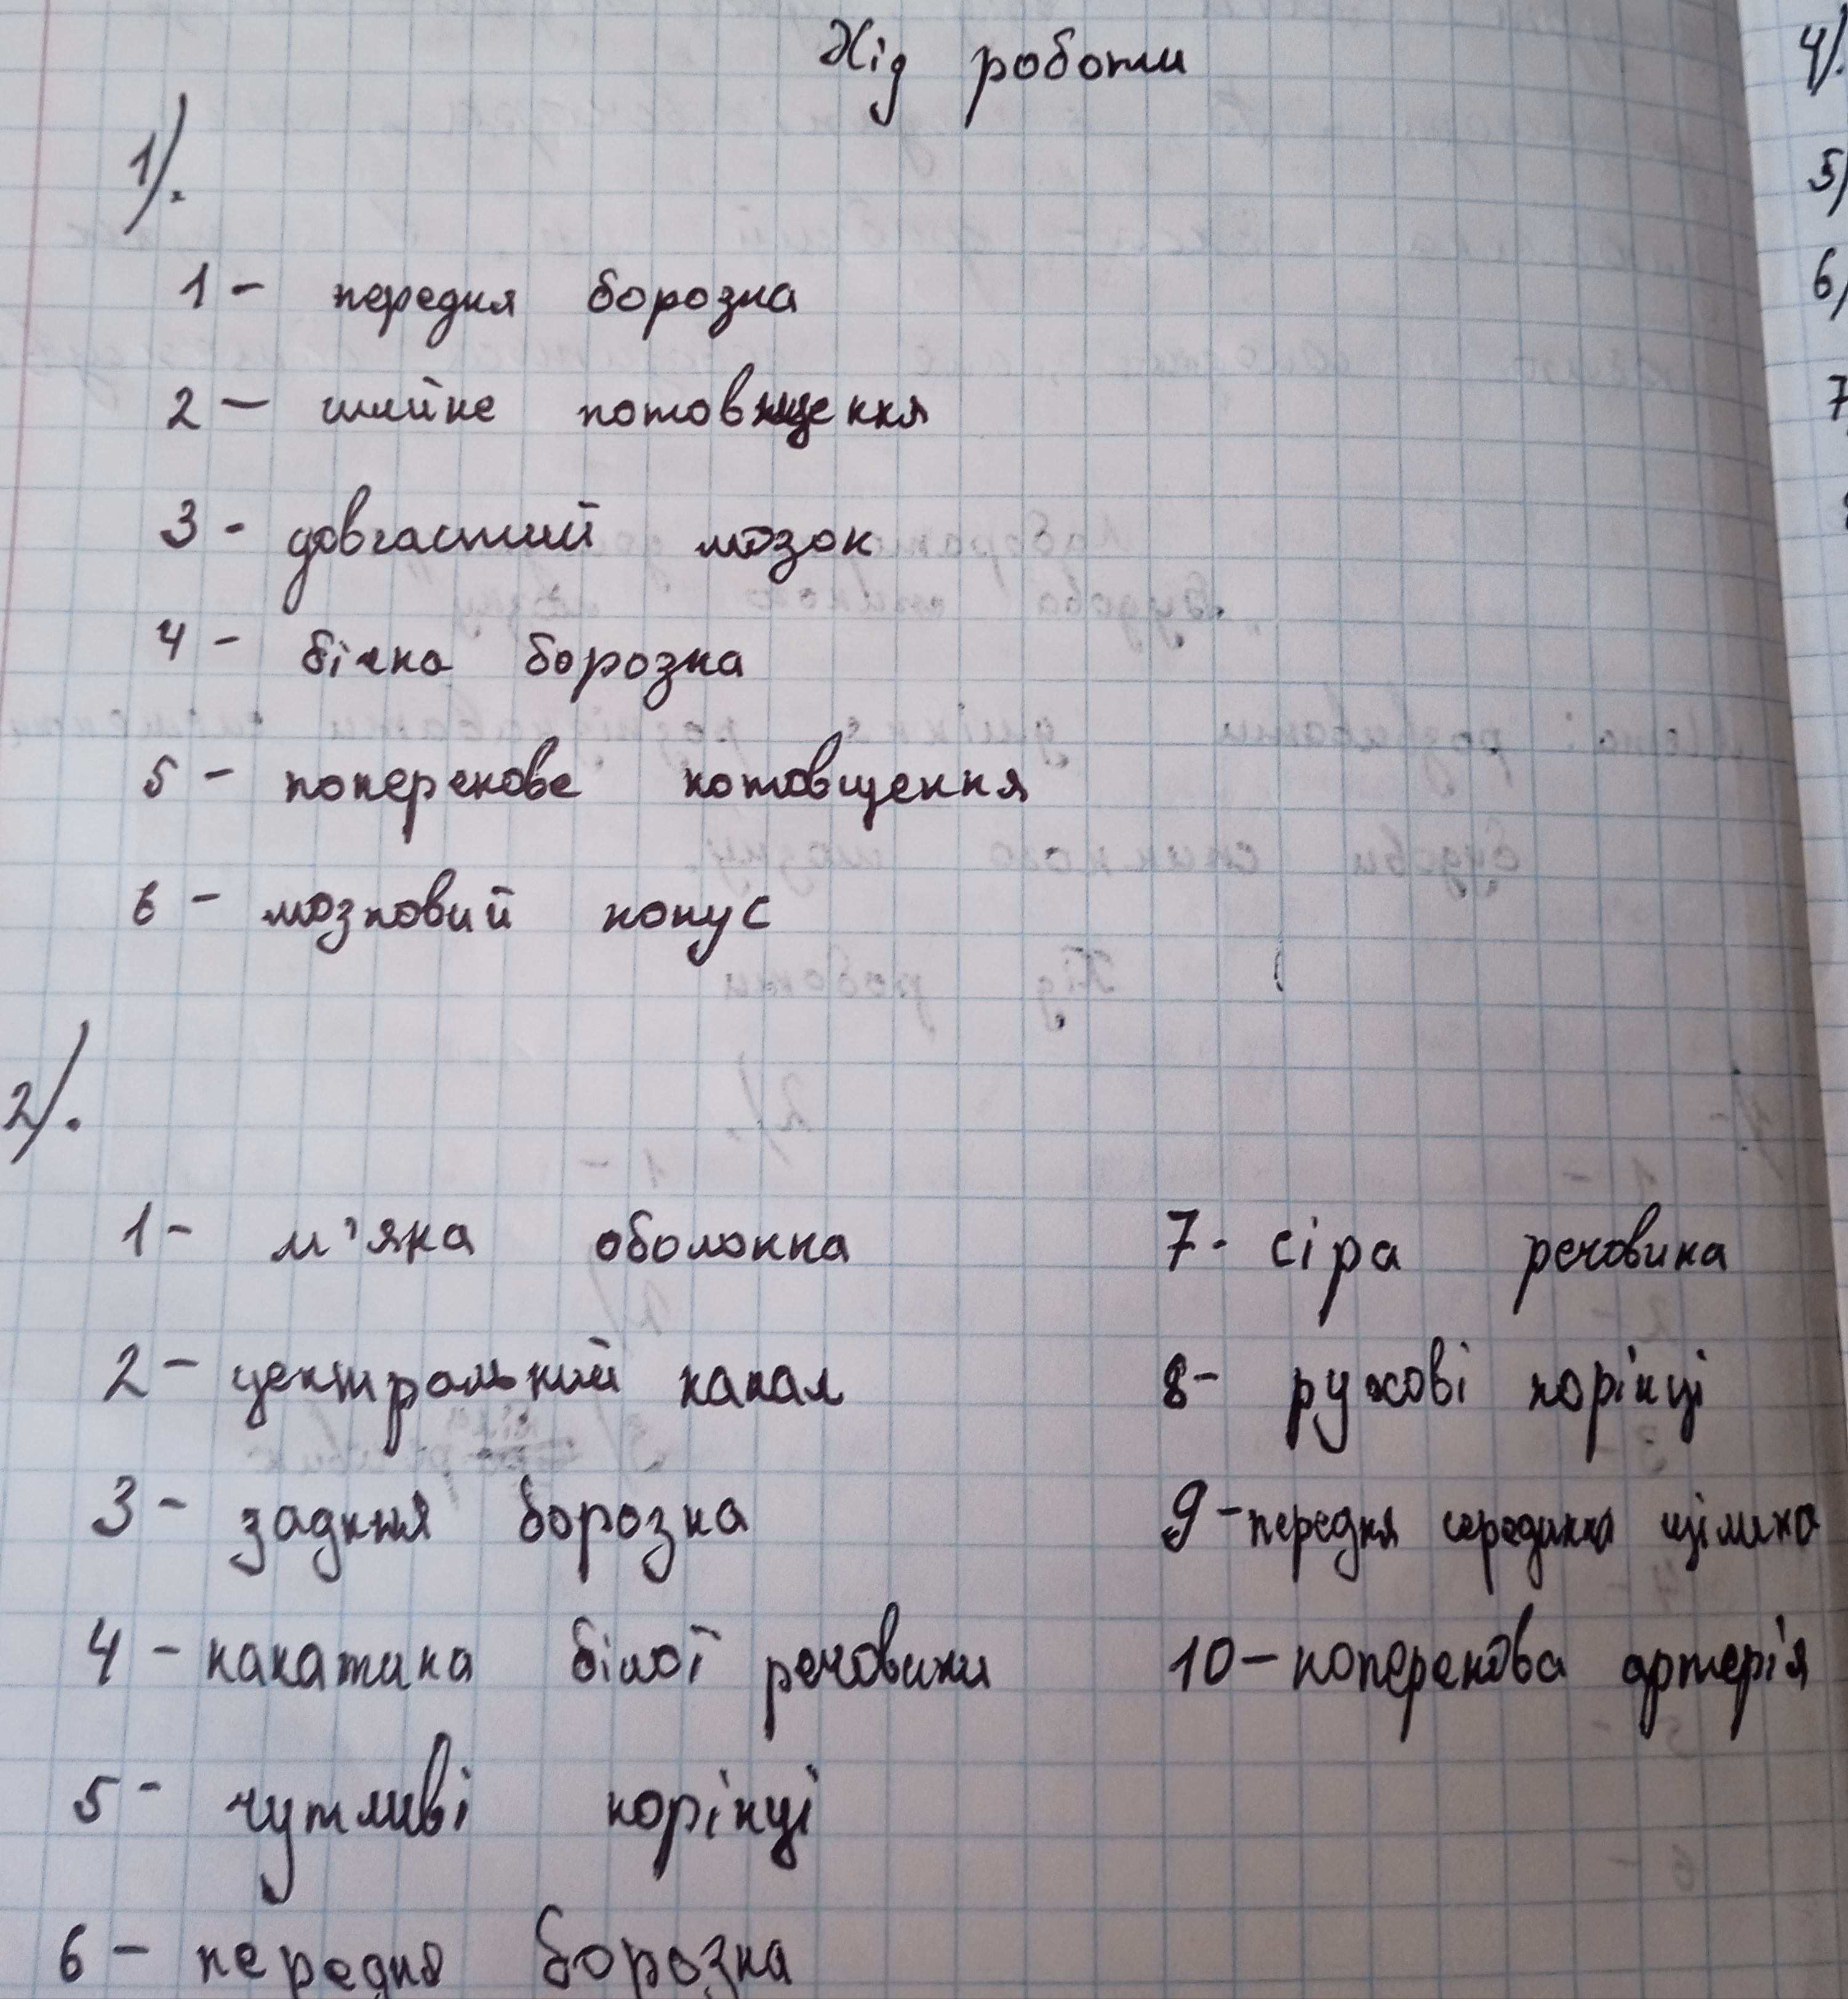 Хід роботи
1).
1 - передня борозна
2 - шийне потовщення
3 - довгастий мозок
4 - бічна борозна
5 - поперекове потовщення
6 - мозковий конус
2).
1 - м'яка оболонка
2 - центральний канал
3 - задня борозна
4 - канатика білої речовини
5 - чутливі корінці
6 - передня борозна
7 - сіра речовина
8 - рухові корінці
9 - передня серединна щілина
10 - поперекова артерія
4).
5)
6)
7